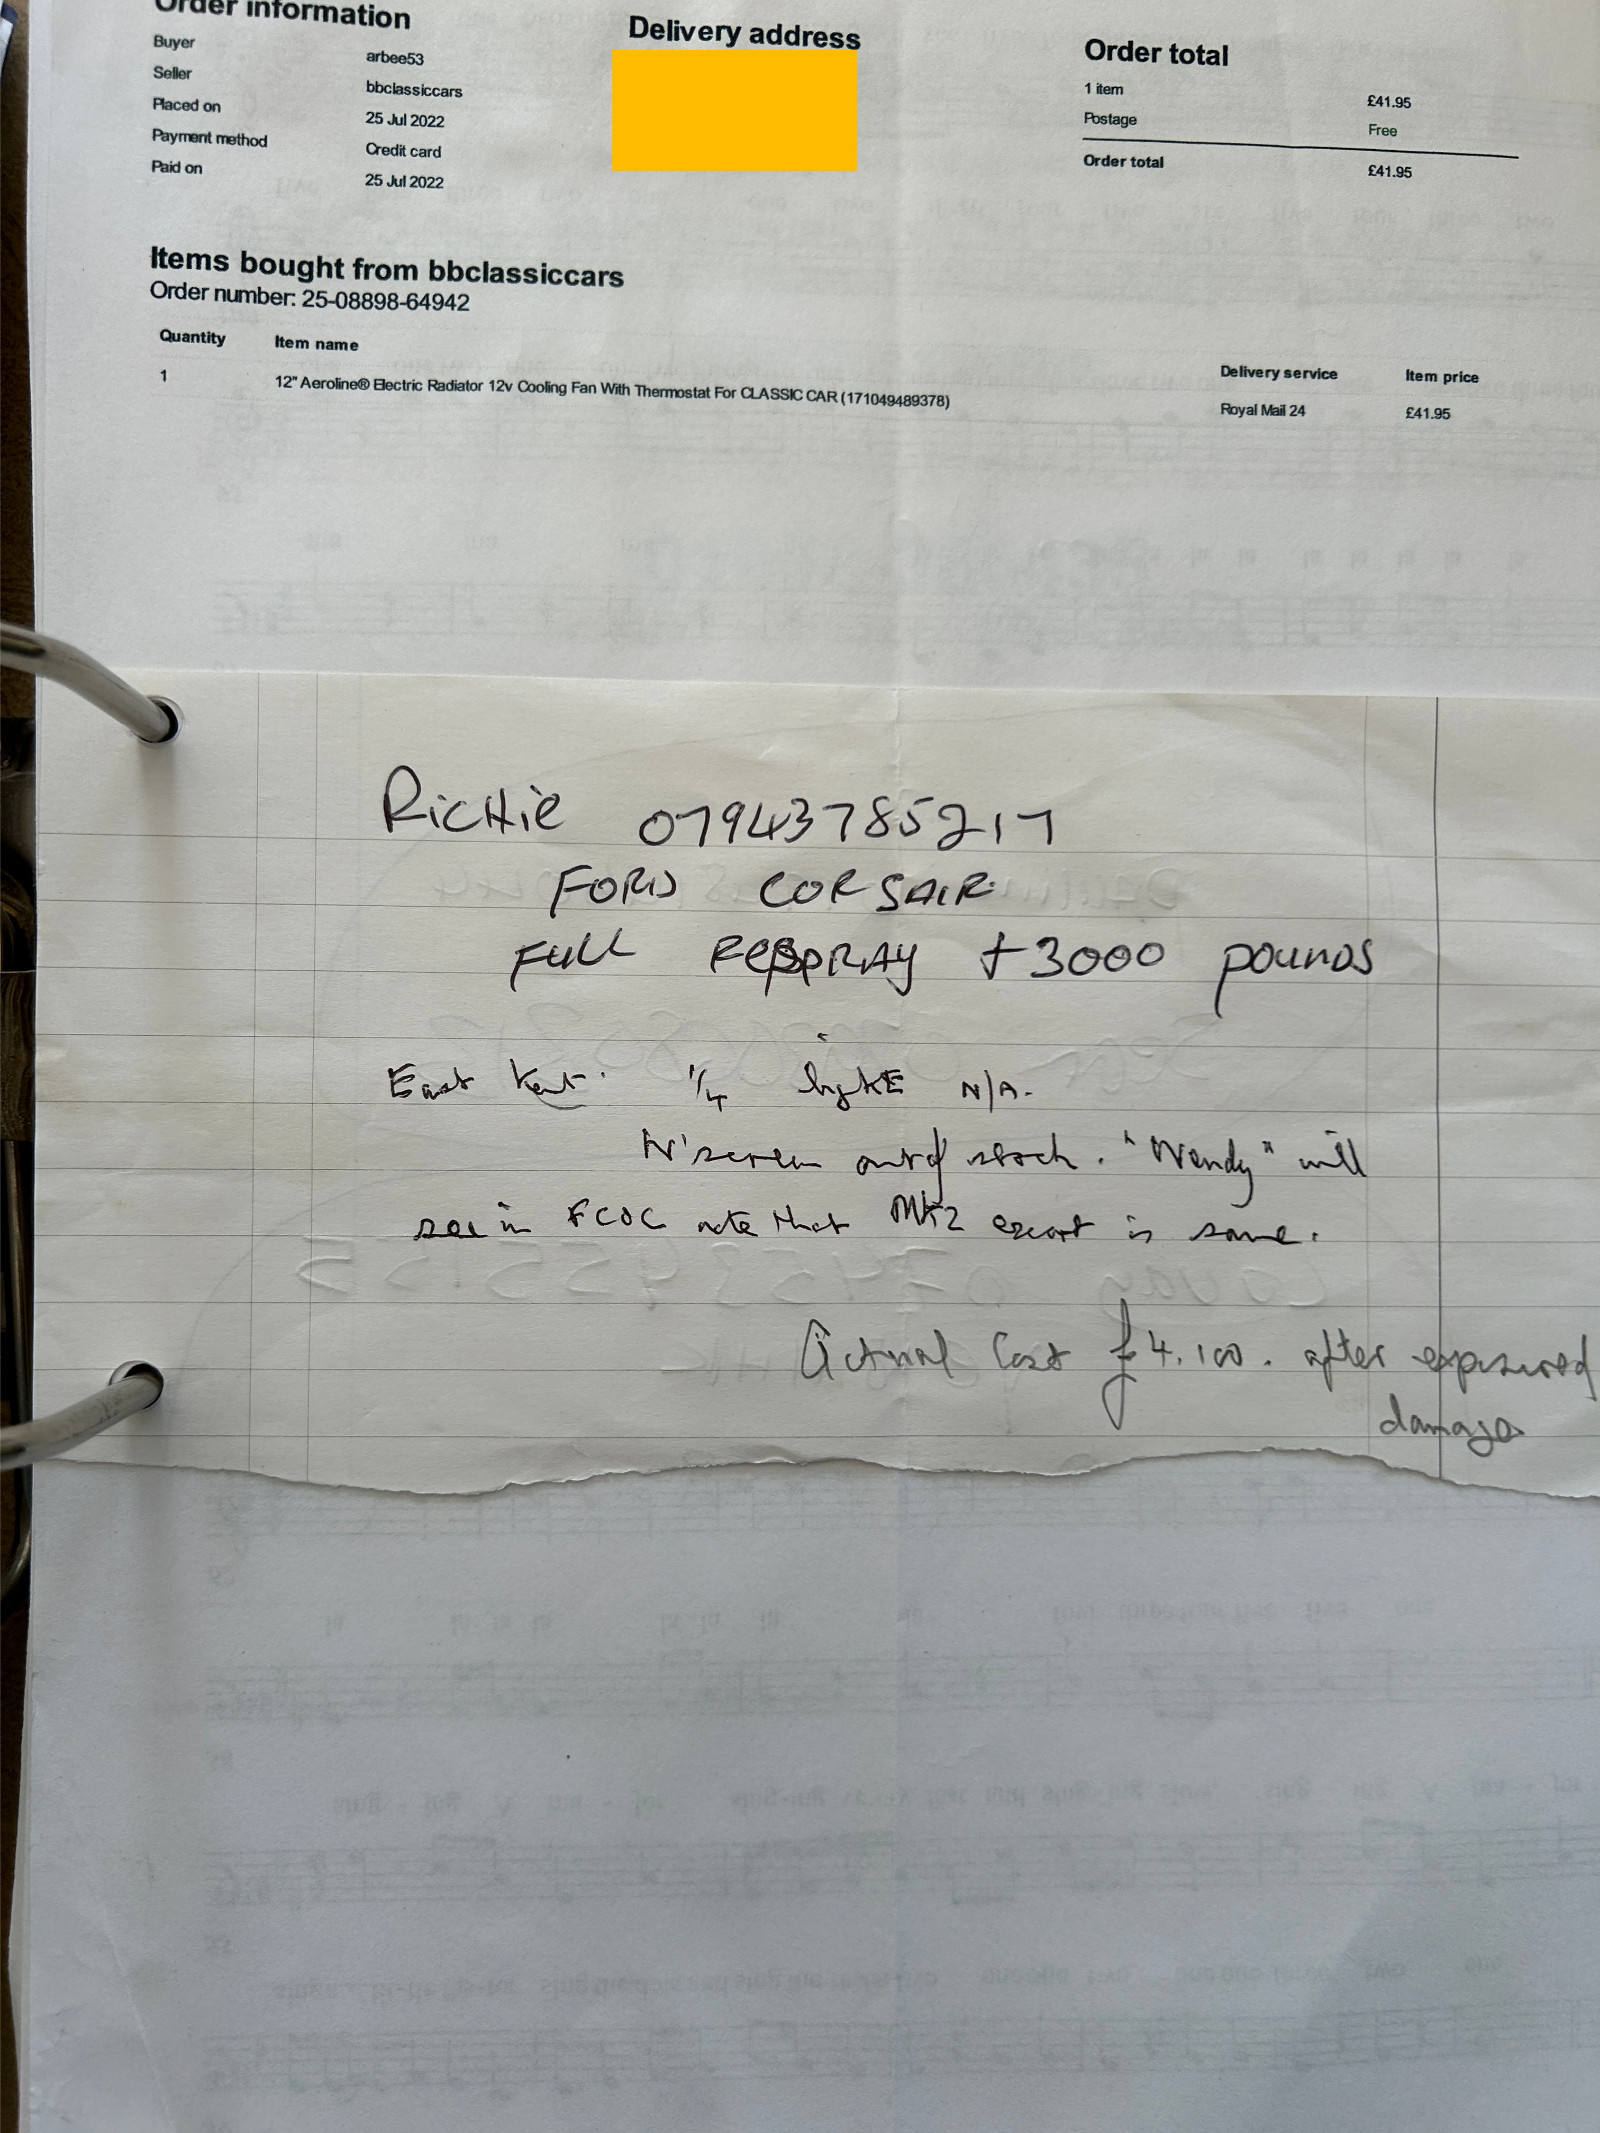 Order information
Buyer arbee53
Seller bbclassiccars
Placed on 25 Jul 2022
Payment method Credit card
Paid on 25 Jul 2022
Delivery address
Order total
1 item £41.95
Postage Free
Order total £41.95
Items bought from bbclassiccars
Order number: 25-08898-64942
Quantity Item name Delivery service Item price
1 12" Aeroline® Electric Radiator 12v Cooling Fan With Thermostat For CLASSIC CAR (171049489378) Royal Mail 24 £41.95
RicHie 07943785217
FORD CORSAIR
FULL RESPRAY £3000 pounds
East Kent. 1/4 light N/A.
W'screen out of stock. "Wendy" will
see in FCOC note that Mk2 escort is same.
Actual Cost £4,100. after
damage